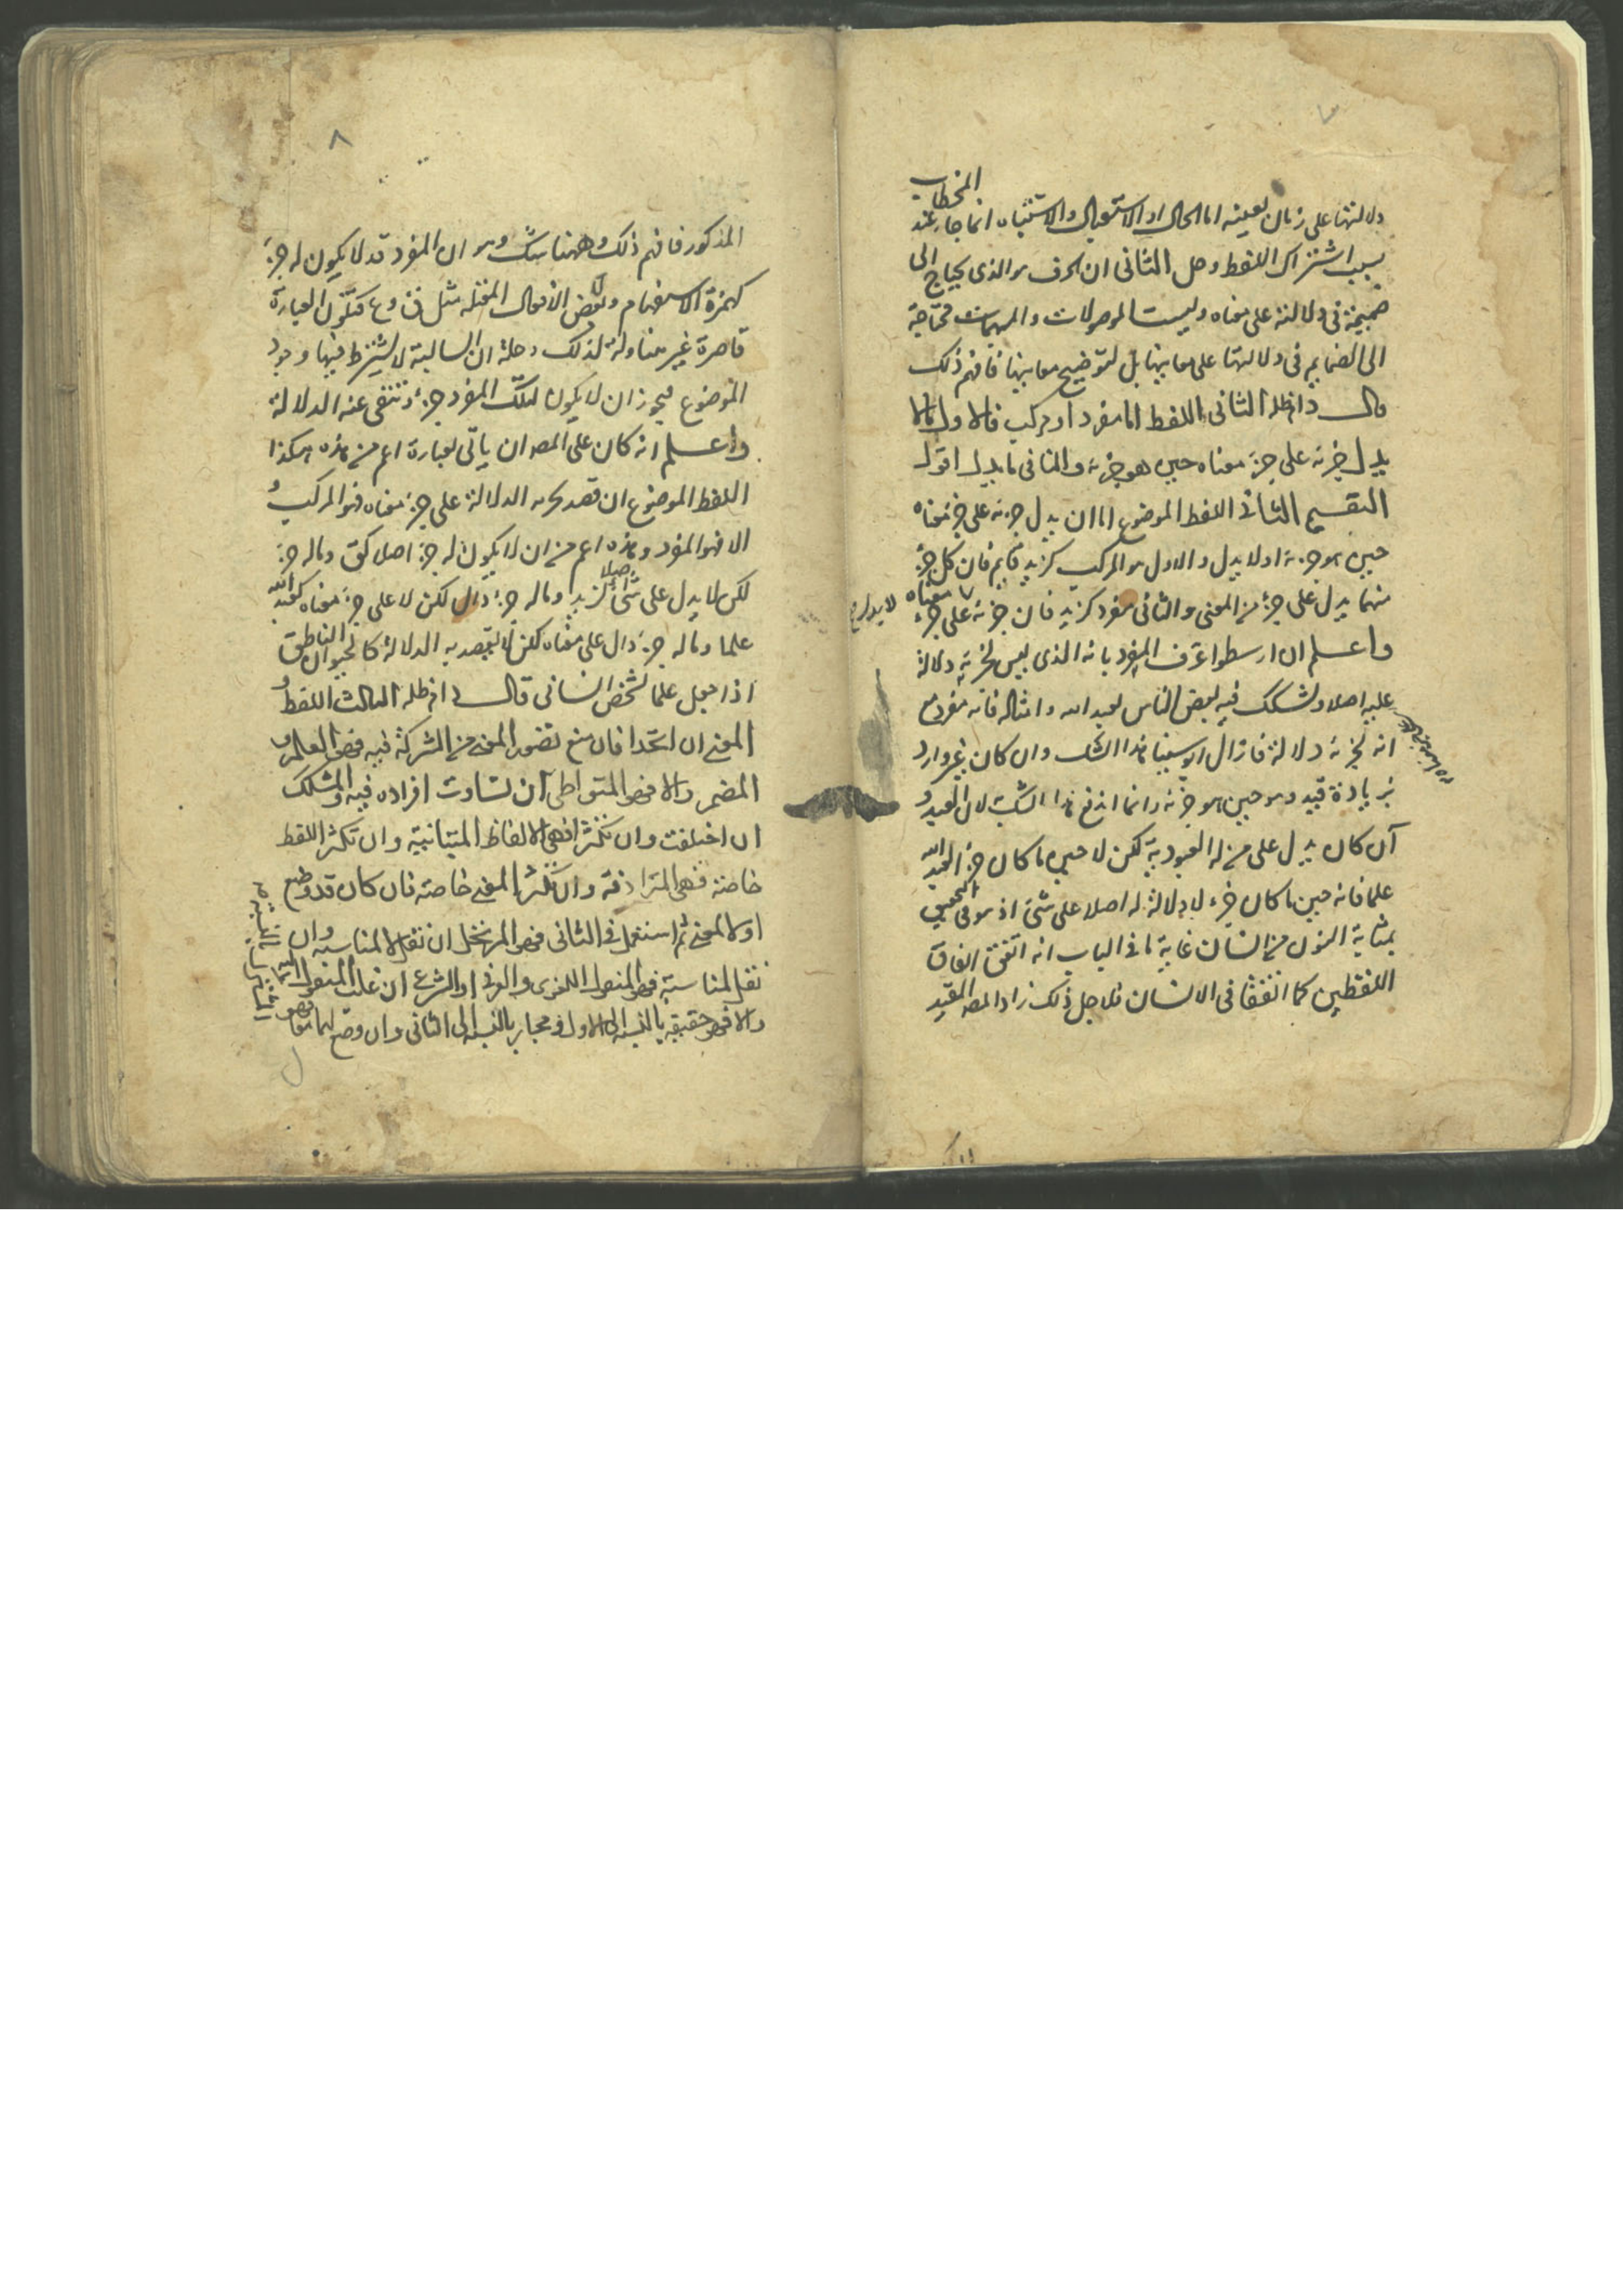 ٧
دلالتها على زمان بعينه اما الحال او الاستقبال والاشتباه انما جاء عند المخطاب
بسبب اشتراك اللفظ وحل الثانى ان الحرف هو الذى يحتاج الى
ضميمة فى دلالته على معناه وليست الموصولات والمبهمات محتاجة
الى الضمايم فى دلالتها على معانيها بل لتوضيح معانيها فافهم ذلك
قال دام ظله الثانى اللفظ اما مفرد او مركب فالاول ما لا
يدل جزئه على جزء معناه حين هو جزئه والثانى ما يدل اقول
التقسيم الثانى اللفظ الموضوع اما ان يدل جزئه على جزء معناه
حين هو جزئه او لا يدل والاول هو المركب كزيد قايم فان كل جزء
منهما يدل على جزء من المعنى والثانى مفرد كزيد فان جزئه على جزء معناه
لا يدل
واعلم ان ارسطوا عرف المفرد بانه الذى ليس لجزئه دلالة
عليه اصلا وتشكك فيه بعض الناس بعبد الله وامثاله فانه مفرد مع
انه لجزئه دلالة فازال ابو سينا هذا الشك وان كان غير وارد
بزيادة قيد وهو حين هو جزئه وانما اندفع هذا الشك لان العبد و
ان كان يدل على من له العبودية لكن لا حين ما كان جزء العبد الله
علما فانه حين ما كان جزء لا دلالة له اصلا على شئ اذ هو فى التحقيق
بمثابة النون من انسان غاية ما فى الباب انه اتفق اتفاق
اللفظين كما اتفقا فى الانسان فلاجل ذلك زاد المص القيد
٨
المذكور فافهم ذلك وههنا شك وهو ان المفرد قد لا يكون له جزء
كهمزة الاستفهام ولبعض الافعال المعتله مثل ق و ع فتكون العبارة
قاصرة غير متناولة لذلك وحله ان السالبة لا يشترط فيها وجود
الموضوع فيجوز ان لا يكون لتلك المفرد جزء وتنتفى عنه الدلالة
واعلم انه كان على المص ان ياتى بعبارة اعم من هذه هكذا
اللفظ الموضوع ان قصد بجزئه الدلالة على جزء معناه فهو المركب و
الا فهو المفرد وهذه اعم من ان لا يكون له جزء اصلا كق وما له جزء
لكن لا يدل على شئ اصلا كزيد وما له جزء دال لكن لا على جزء معناه كعبد الله
علما وما له جزء دال على معناه لكن لا يقصد به الدلالة كالحيوان الناطق
اذا جعل علما لشخص انسانى قال دام ظله الثالث اللفظ و
المعنى ان اتحدا فان منع تصور المعنى من الشركة فيه فهو العلم و
المضمر والا فهو المتواطى ان تساوت افراده فيه والمشكك
ان اختلفت وان تكثرا فهى الالفاظ المتباينة وان تكثر اللفظ
خاصة فهى المترادفة وان تكثر المعنى خاصة فان كان قد وضع
اولا لمعنى ثم استعمل فى الثانى فهو المرتجل ان نقل لا لمناسبه وان
نقل لمناسبة فهو المنقول اللغوى والعرفى او الشرعى ان غلب المنقول اليه
والا فهو حقيقه بالنسبه الى الاول ومجاز بالنسبه الى الثانى وان وضع لهما معا فهو